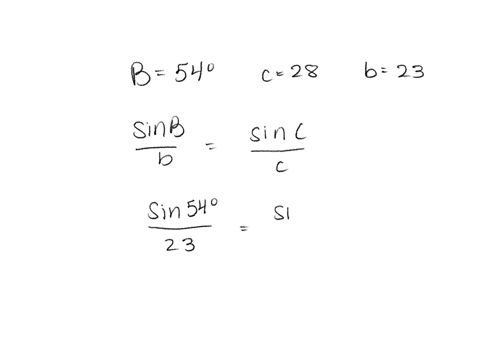 B = 54° c = 28 b = 23
sinB/b = sin C/c
Sin 54°/23 = SI